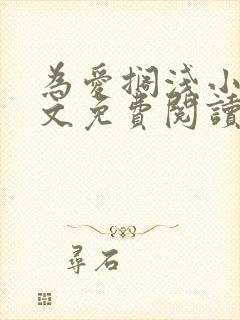 為愛擱淺小
文免費閱讀
尋石